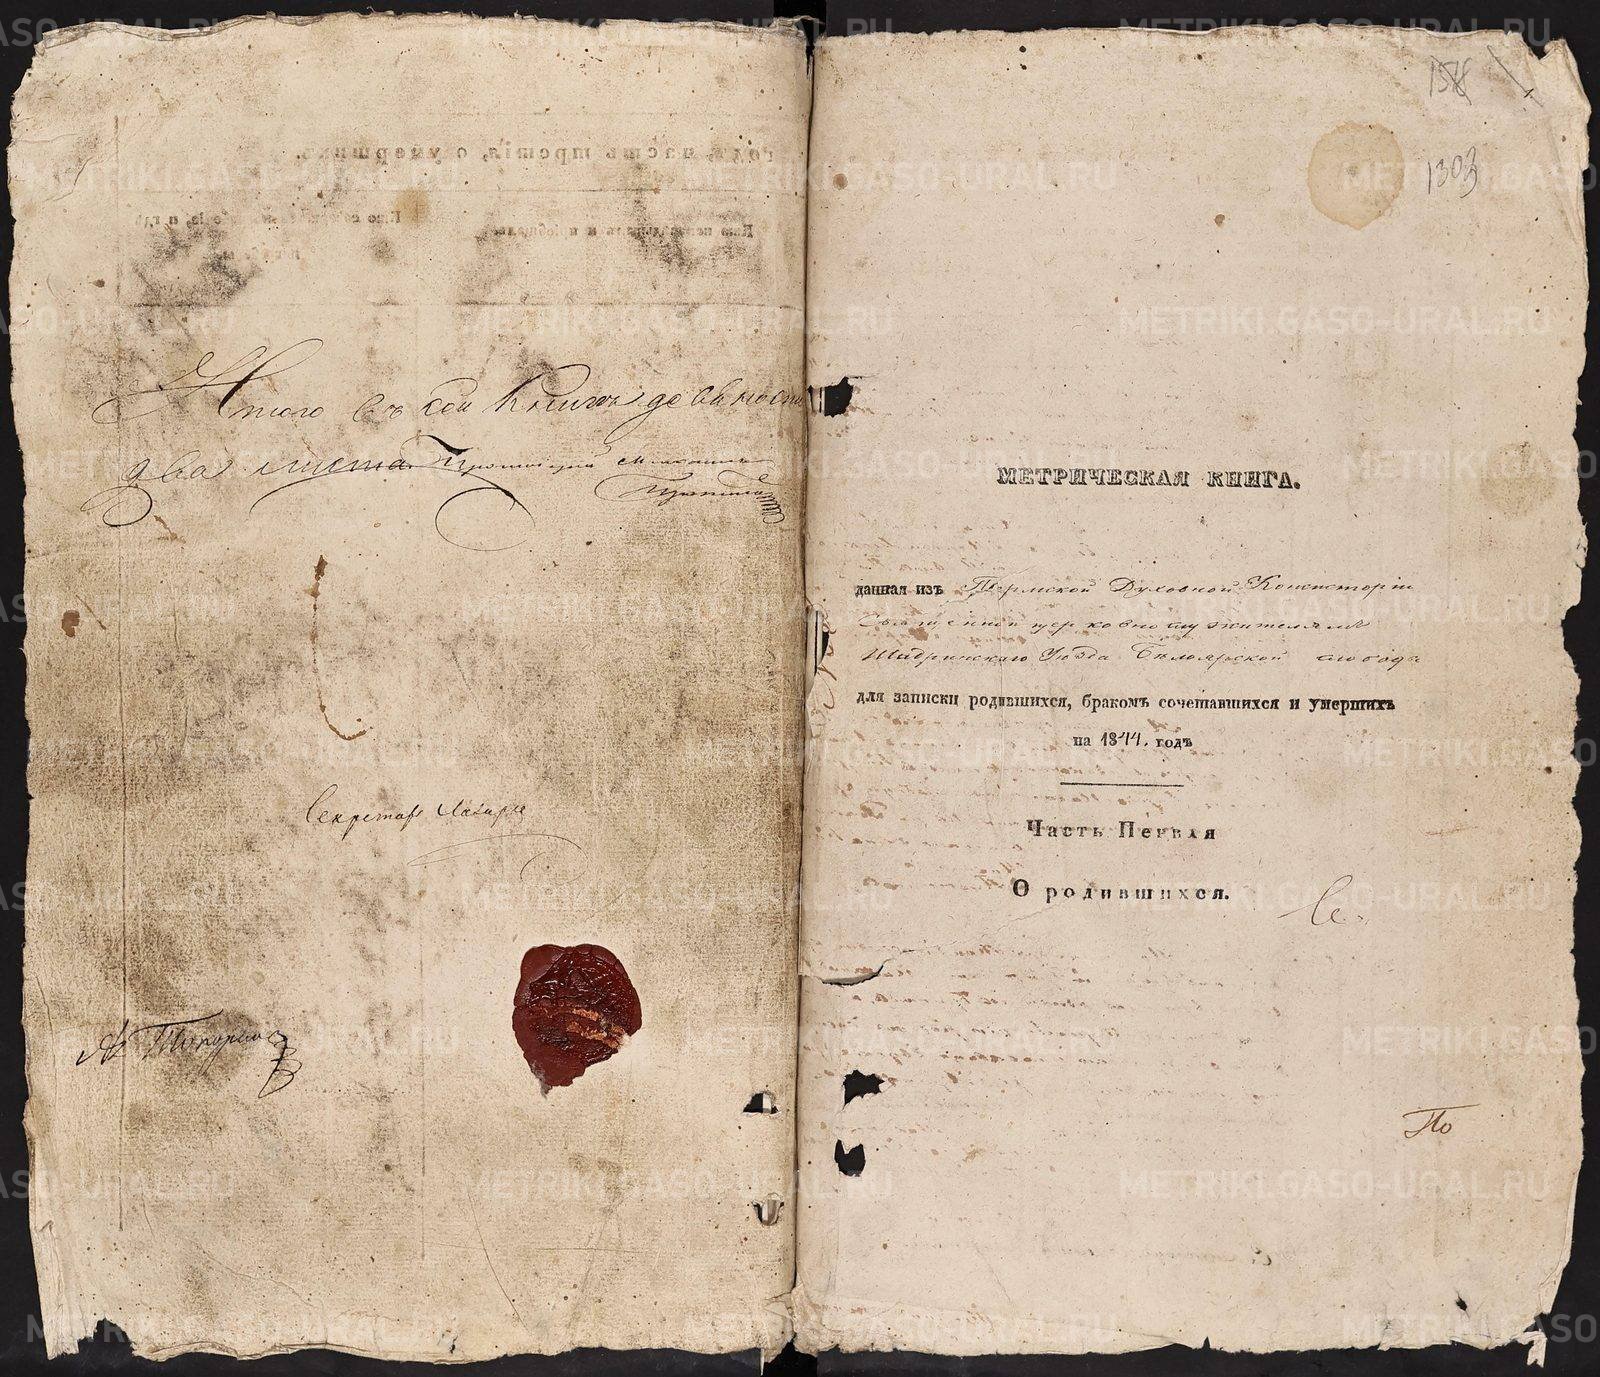 Итого въ сей книгѣ девяносто
два листа Протоіерей Михаилъ
Секретарь
1303
МЕТРИЧЕСКАЯ КНИГА.
данная изъ Пермской Духовной Консисторіи
Священно церковно служителямъ
Шадринскаго Уѣзда Бѣлоярской слободы
для записки родившихся, бракомъ сочетавшихся и умершихъ
на 1844. годъ
Часть Первая
О родившихся.
Се
По
METRIKI.GASO-URAL.RU